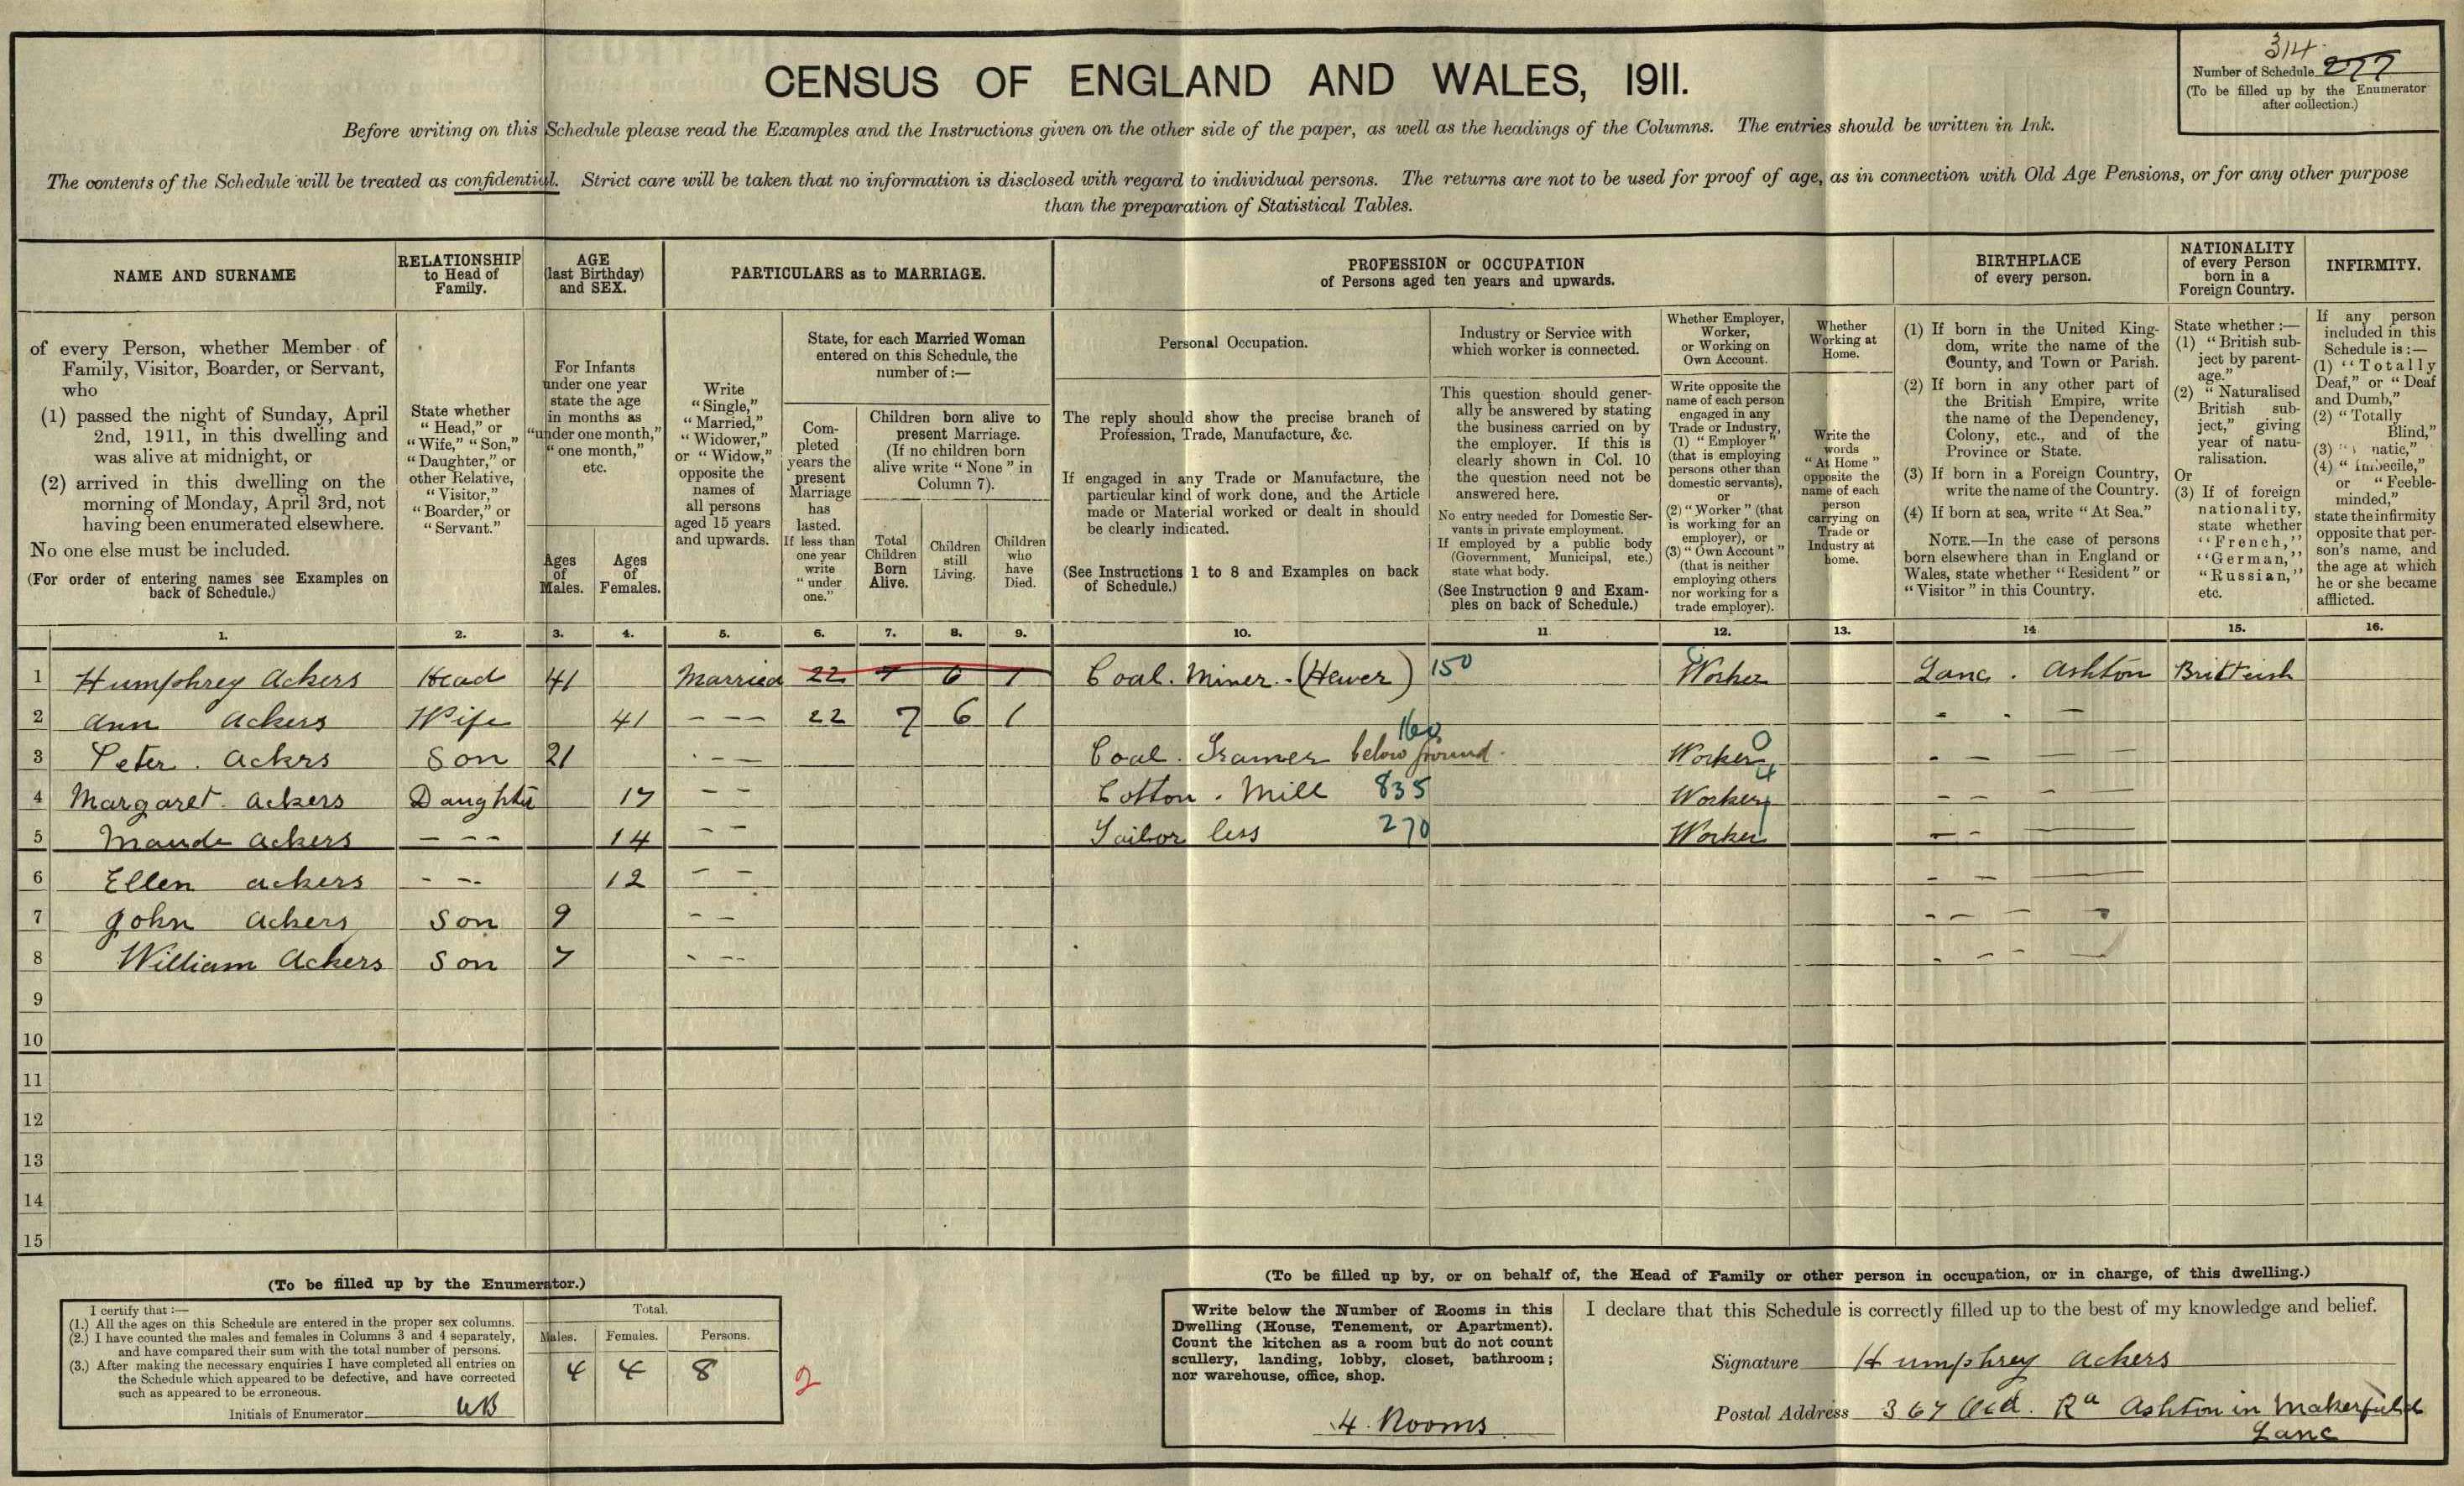 314
Number of Schedule 277
(To be filled up by the Enumerator
after collection.)
CENSUS OF ENGLAND AND WALES, 1911.
Before writing on this Schedule please read the Examples and the Instructions given on the other side of the paper, as well as the headings of the Columns. The entries should be written in Ink.
The contents of the Schedule will be treated as confidential. Strict care will be taken that no information is disclosed with regard to individual persons. The returns are not to be used for proof of age, as in connection with Old Age Pensions, or for any other purpose
than the preparation of Statistical Tables.
NAME AND SURNAME
of every Person, whether Member of
Family, Visitor, Boarder, or Servant,
who
(1) passed the night of Sunday, April
2nd, 1911, in this dwelling and
was alive at midnight, or
(2) arrived in this dwelling on the
morning of Monday, April 3rd, not
having been enumerated elsewhere.
No one else must be included.
(For order of entering names see Examples on
back of Schedule.)
RELATIONSHIP
to Head of
Family.
State whether
"Head," or
"Wife," "Son,"
"Daughter," or
other Relative,
"Visitor,"
"Boarder," or
"Servant."
AGE
(last Birthday)
and SEX.
For Infants
under one year
state the age
in months as
"under one month,"
"one month,"
etc.
Ages
of
Males.
Ages
of
Females.
PARTICULARS as to MARRIAGE.
Write
"Single,"
"Married,"
"Widower,"
or "Widow,"
opposite the
names of
all persons
aged 15 years
and upwards.
State, for each Married Woman
entered on this Schedule, the
number of :—
Com-
pleted
years the
present
Marriage
has
lasted.
If less than
one year
write
"under
one."
Children born alive to
present Marriage.
(If no children born
alive write "None" in
Column 7).
Total
Children
Born
Alive.
Children
still
Living.
Children
who
have
Died.
PROFESSION or OCCUPATION
of Persons aged ten years and upwards.
Personal Occupation.
The reply should show the precise branch of
Profession, Trade, Manufacture, &c.
If engaged in any Trade or Manufacture, the
particular kind of work done, and the Article
made or Material worked or dealt in should
be clearly indicated.
(See Instructions 1 to 8 and Examples on back
of Schedule.)
Industry or Service with
which worker is connected.
This question should gener-
ally be answered by stating
the business carried on by
the employer. If this is
clearly shown in Col. 10
the question need not be
answered here.
No entry needed for Domestic Ser-
vants in private employment.
If employed by a public body
(Government, Municipal, etc.)
state what body.
(See Instruction 9 and Exam-
ples on back of Schedule.)
Whether Employer,
Worker,
or Working on
Own Account.
Write opposite the
name of each person
engaged in any
Trade or Industry,
(1) "Employer"
(that is employing
persons other than
domestic servants),
or
(2) "Worker" (that
is working for an
employer), or
(3) "Own Account"
(that is neither
employing others
nor working for a
trade employer).
Whether
Working at
Home.
Write the
words
"At Home"
opposite the
name of each
person
carrying on
Trade or
Industry at
home.
BIRTHPLACE
of every person.
(1) If born in the United King-
dom, write the name of the
County, and Town or Parish.
(2) If born in any other part of
the British Empire, write
the name of the Dependency,
Colony, etc., and of the
Province or State.
(3) If born in a Foreign Country,
write the name of the Country.
(4) If born at sea, write "At Sea."
NOTE.—In the case of persons
born elsewhere than in England or
Wales, state whether "Resident" or
"Visitor" in this Country.
NATIONALITY
of every Person
born in a
Foreign Country.
State whether :—
(1) "British sub-
ject by parent-
age."
(2) "Naturalised
British sub-
ject," giving
year of natu-
ralisation.
Or
(3) If of foreign
nationality,
state whether
"French,"
"German,"
"Russian,"
etc.
INFIRMITY.
If any person
included in this
Schedule is :—
(1) "Totally
Deaf," or "Deaf
and Dumb,"
(2) "Totally
Blind,"
(3) natic,"
(4) "Imbecile,"
or "Feeble-
minded,"
state the infirmity
opposite that per-
son's name, and
the age at which
he or she became
afflicted.
1. 2. 3. 4. 5. 6. 7. 8. 9. 10. 11 12. 13. 14. 15. 16.
1 Humphrey Ackers Head 41 Married 22 7 6 1 Coal. Miner. (Hewer) 150 Worker Lanc. Ashton Brittish
2 Ann Ackers Wife 41 - - - 22 7 6 1
3 Peter. Ackers Son 21 - - - Coal. Tramer below ground. 160 Worker 0
4 Margaret. Ackers Daughter 17 - - Cotton. Mill 835 Worker 4
5 Maude Ackers - - - 14 - - Tailor less 270 Worker
6 Ellen Ackers - - - 12 - -
7 John Ackers Son 9 - -
8 William Ackers Son 7 - - -
9
10
11
12
13
14
15
(To be filled up by the Enumerator.)
I certify that :—
(1.) All the ages on this Schedule are entered in the proper sex columns.
(2.) I have counted the males and females in Columns 3 and 4 separately,
and have compared their sum with the total number of persons.
(3.) After making the necessary enquiries I have completed all entries on
the Schedule which appeared to be defective, and have corrected
such as appeared to be erroneous.
Initials of Enumerator WB
Total.
Males. Females. Persons.
4 4 8
2
(To be filled up by, or on behalf of, the Head of Family or other person in occupation, or in charge, of this dwelling.)
Write below the Number of Rooms in this
Dwelling (House, Tenement, or Apartment).
Count the kitchen as a room but do not count
scullery, landing, lobby, closet, bathroom;
nor warehouse, office, shop.
4. Rooms
I declare that this Schedule is correctly filled up to the best of my knowledge and belief.
Signature Humphrey Ackers
Postal Address 367 Old. Rd Ashton in Makerfield
Lanc